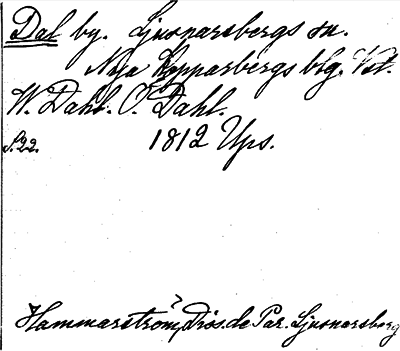 Dal by. Ljusnarsbergs sn.
Nya Kopparbergs blg. Vstm.
W. Dahl. O. Dahl.
S. 22. 1812 Ups.
Hammarström, Diss. de Par. Ljusnarsberg